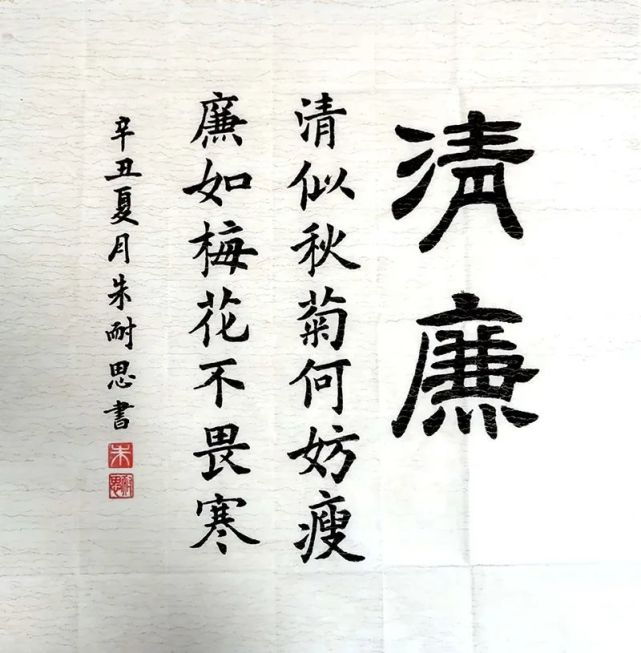 清廉
清似秋菊何妨瘦
廉如梅花不畏寒
辛丑夏月朱耐思書
朱
耐思